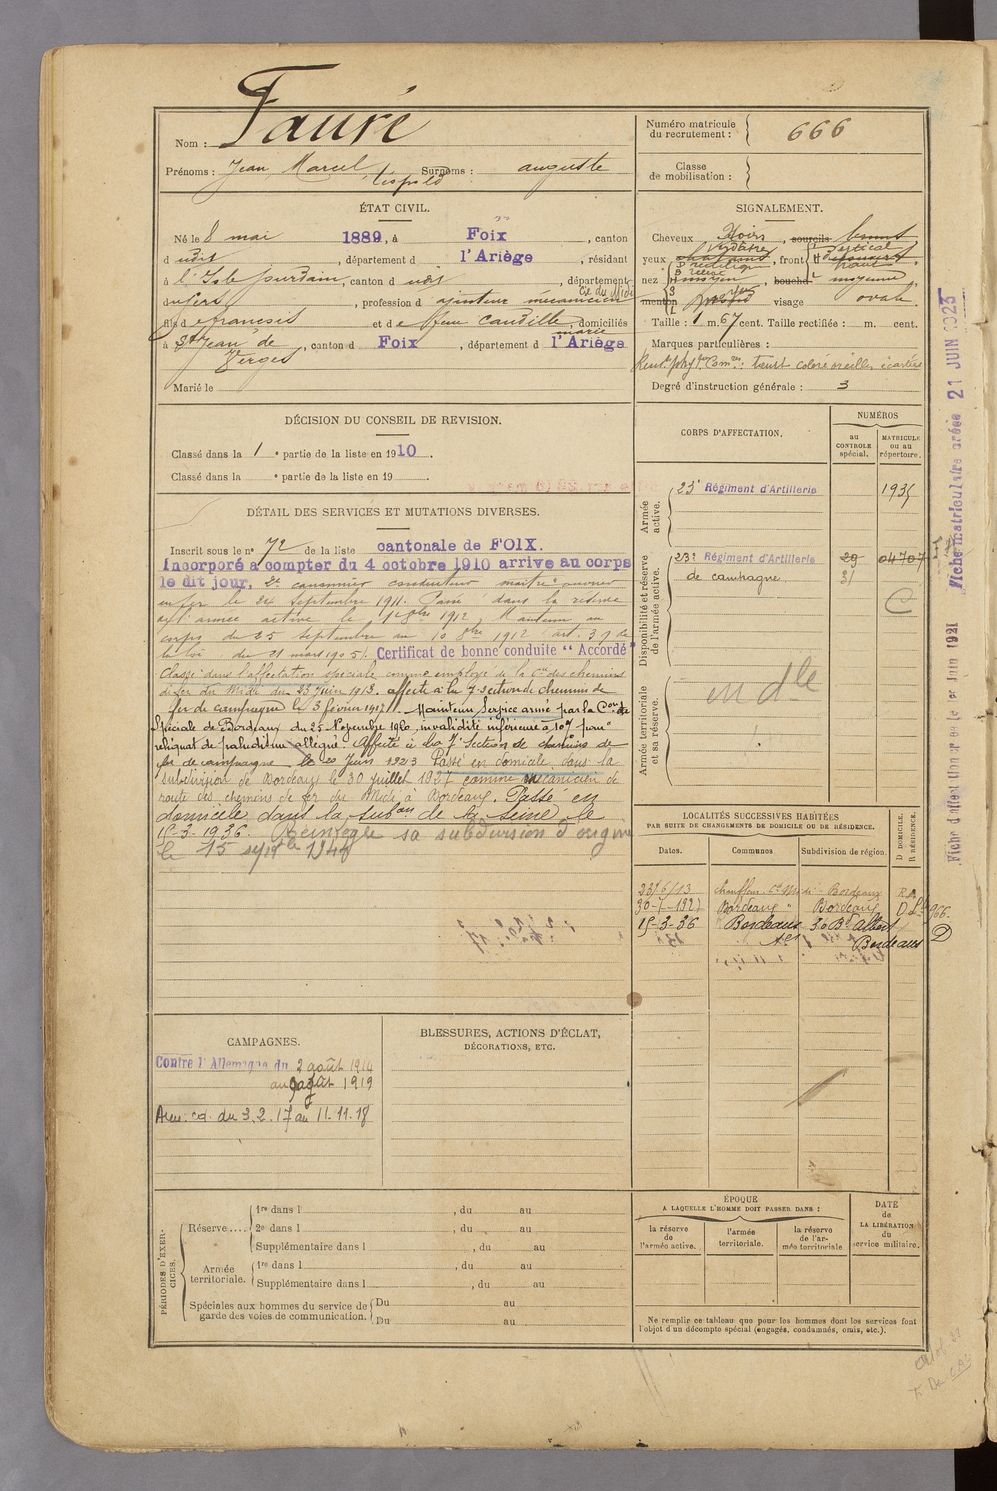 Nom : Fauré
Prénoms : Jean Marcel Léopold Surnoms : auguste
Numéro matricule du recrutement : 666
Classe de mobilisation :
ÉTAT CIVIL.
Né le 8 mai 1889, à Foix, canton
d udit, département d l'Ariège, résidant
à l'Isle Jourdain, canton d udit, département
du Gers, profession d ajusteur mécanicien Cie du Midi
fils de françois et de feue Caudille marie, domiciliés
à St Jean de Verges, canton d Foix, département d l'Ariège
Marié le
SIGNALEMENT.
Cheveux Noirs, sourcils bruns
yeux, front vertical
nez, bouche moyenne
menton visage ovale
Taille : 1 m. 67 cent. Taille rectifiée : m. cent.
Marques particulières :
teint coloré oreilles écartées
Degré d'instruction générale : 3
DÉCISION DU CONSEIL DE REVISION.
Classé dans la 1e partie de la liste en 1910.
Classé dans la e partie de la liste en 19
DÉTAIL DES SERVICES ET MUTATIONS DIVERSES.
Inscrit sous le no 72 de la liste cantonale de FOIX.
Incorporé à compter du 4 octobre 1910 arrive au corps
le dit jour, 2e canonnier conducteur maître ouvrier
en fer le 24 septembre 1911. Passé dans la réserve
de l'armée active le 1er 8bre 1912. Maintenu au
corps du 25 septembre au 10 8bre 1912 (art. 39 de
la loi du 21 mars 1905). Certificat de bonne conduite "Accordé"
Classé dans l'affectation spéciale comme employé de la Cie des chemins
de fer du Midi du 23 Juin 1913. affecté à la 7e section de chemins de
fer de campagne le 3 février 1917. Maintenu Service armé par la Con de
Spéciale de Bordeaux du 25 Novembre 1920, invalidité inférieure à 10% pour
reliquat de paludisme allégué. Affecté à la 7e Section de chemins de
fer de campagne le 20 Juin 1923 Passé en domicile dans la
subdivision de Bordeaux le 30 juillet 1927 comme mécanicien de
route des chemins de fer du Midi à Bordeaux. Passé en
domicile dans la subon de la Seine le
15-3-1936. Réintègre sa subdivision d'origine
le 15 septbre 1940
CORPS D'AFFECTATION.
NUMÉROS
au CONTROLE spécial.
MATRICULE ou au répertoire.
Armée active.
23e Régiment d'Artillerie 1935
Disponibilité et réserve de l'armée active.
23e Régiment d'Artillerie 29 04707
de campagne.
C
Armée territoriale et sa réserve.
en dle
LOCALITÉS SUCCESSIVES HABITÉES
PAR SUITE DE CHANGEMENTS DE DOMICILE OU DE RÉSIDENCE.
D DOMICILE.
R RÉSIDENCE.
Dates. Communes. Subdivision de région.
23/6/13 chauffeur Cie Midi - Bordeaux R
30-7-1927 Bordeaux " Bordeaux D
15-3-36 Bordeaux 30 Bd Albert 1er Bordeaux D
CAMPAGNES.
Contre l'Allemagne du 2 août 1914
au août 1919
du 3.2.17 au 11.11.18
BLESSURES, ACTIONS D'ÉCLAT,
DÉCORATIONS, ETC.
PÉRIODES D'EXERCICES.
Réserve.... 1re dans l , du au
2e dans l , du au
Supplémentaire dans l , du au
Armée territoriale. 1re dans l , du au
Supplémentaire dans l , du au
Spéciales aux hommes du service de garde des voies de communication. Du au
Du au
ÉPOQUE
A LAQUELLE L'HOMME DOIT PASSER DANS :
la réserve de l'armée active.
l'armée territoriale.
la réserve de l'armée territoriale
DATE de LA LIBÉRATION du service militaire.
Ne remplir ce tableau que pour les hommes dont les services font
l'objet d'un décompte spécial (engagés, condamnés, omis, etc.).
Fiche matriculaire créée 21 JUIN 1923
Fiche d'affectation créée le 1er Juin 1921